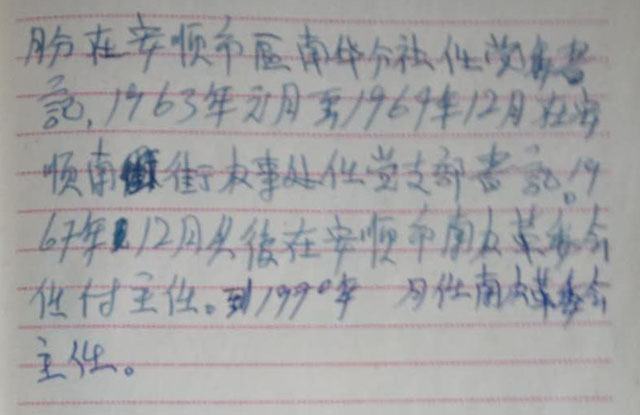 月分在安顺市區南华分社任党委書
記,1963年元月至1969年12月在安
顺南街办事处任党支部書記。19
67年12月以後在安顺市南办革委会
任付主任。到1990年 月任南办革委会
主任。